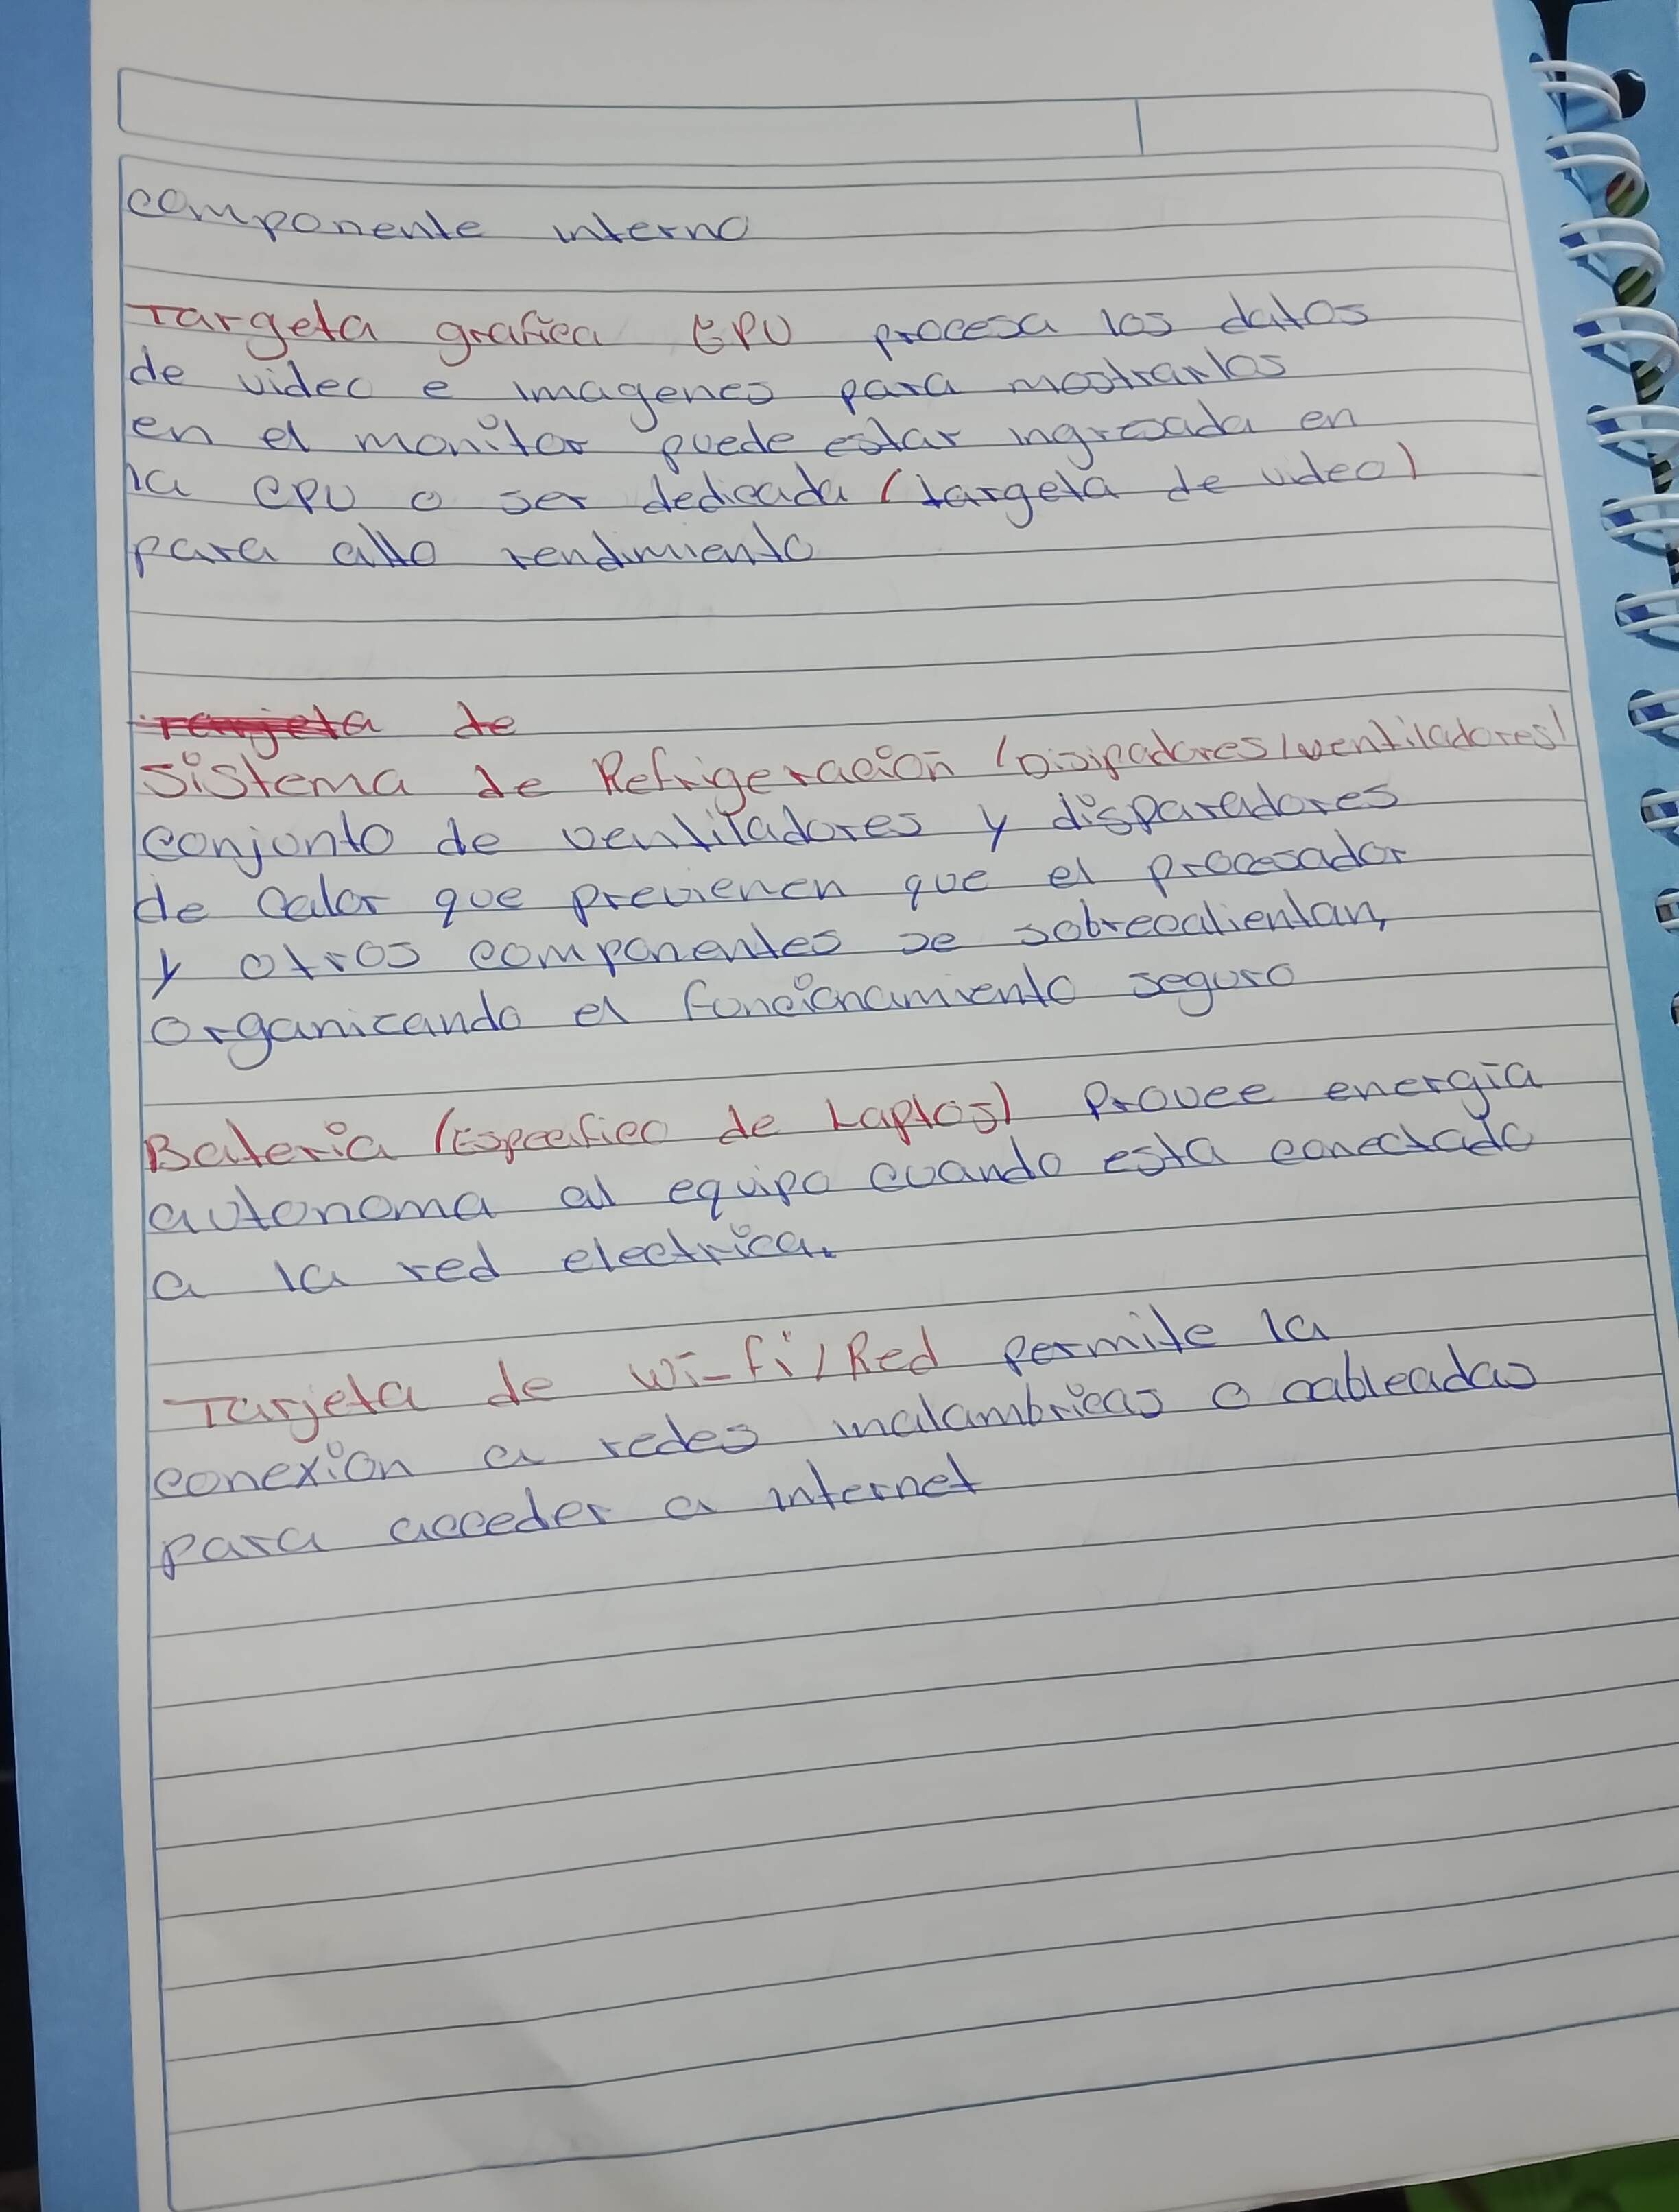 componente interno
Targeta grafica GPU procesa los datos
de video e imagenes para mostrarlos
en el monitor puede estar ingresada en
la CPU o ser dedicada (targeta de video)
para alto rendimiento
Tarjeta de
Sistema de Refrigeración (Disipadores/ventiladores)
conjunto de ventiladores y disparadores
de calor que previenen que el procesador
y otros componentes se sobrecalientan,
organizando el funcionamiento seguro
Bateria (Especifico de Laptos) Provee energia
autonoma al equipo cuando esta conectado
a la red electrica.
Tarjeta de Wi-Fi/Red permite la
conexión a redes inalambricas o cableadas
para acceder a internet